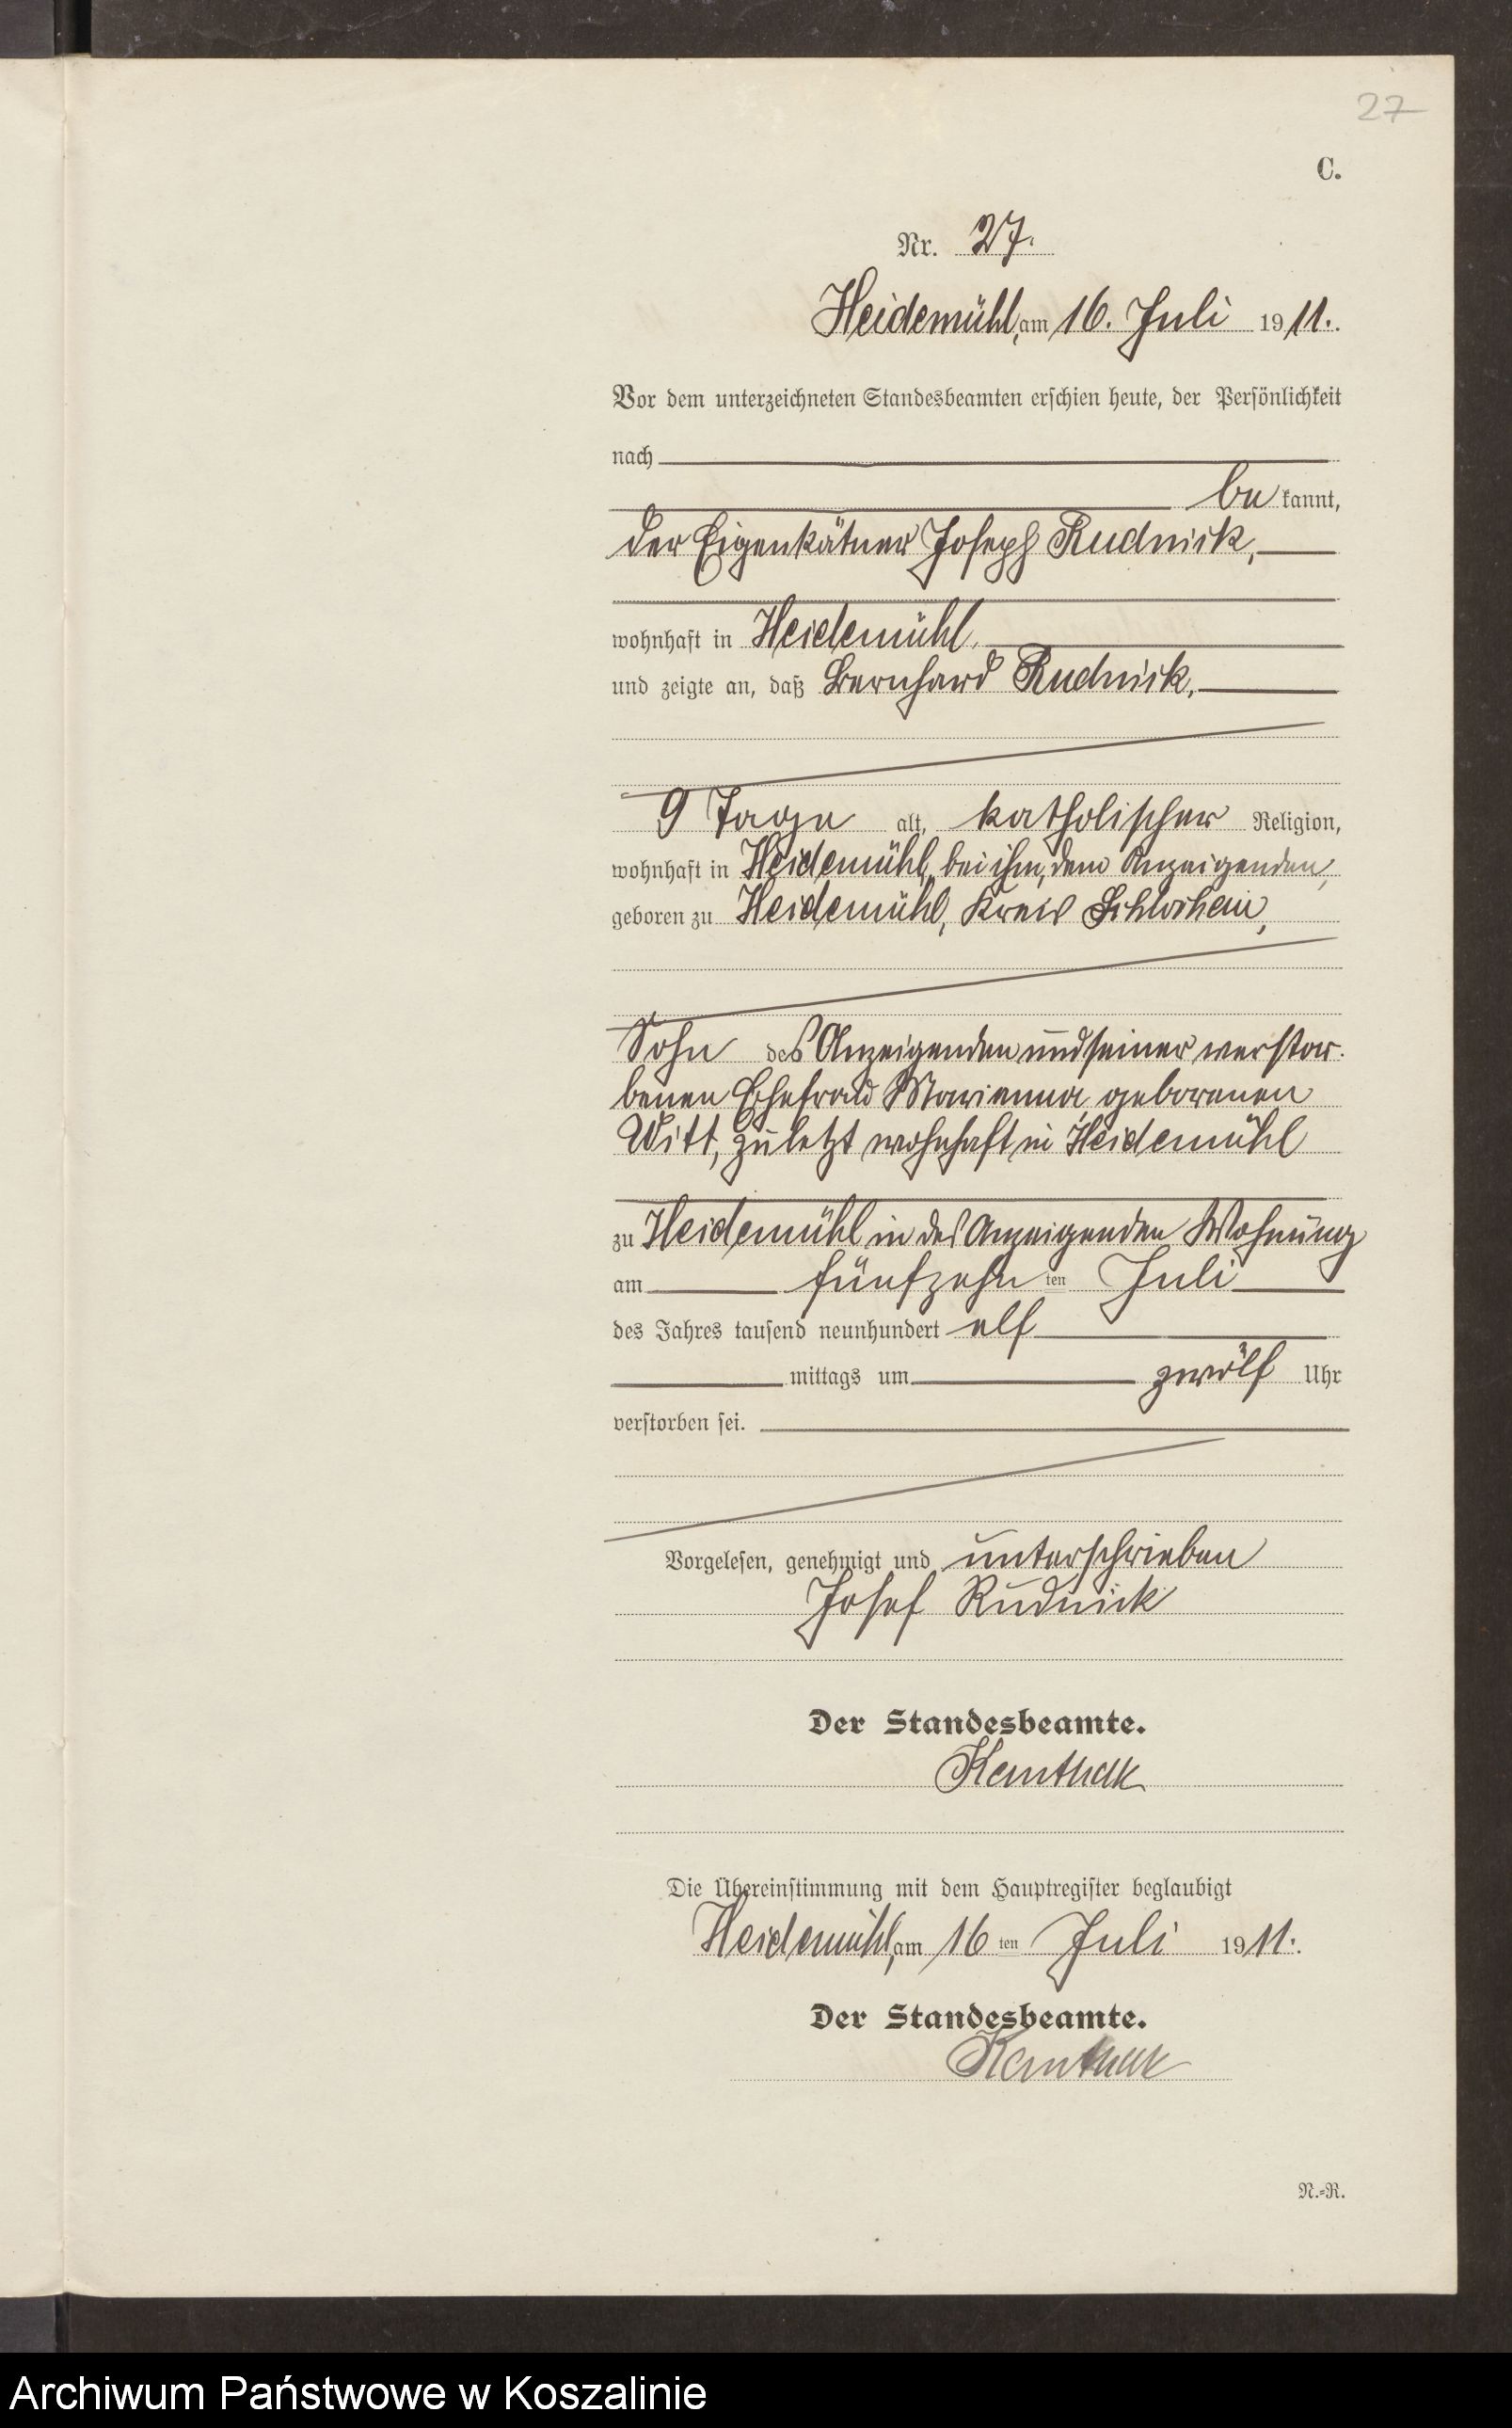 27
C.
Nr. 27.
Heidemühl, am 16. Juli 1911.
Vor dem unterzeichneten Standesbeamten erschien heute, der Persönlichkeit
nach
be kannt,
der Eigenkätner Joseph Rudnick,
wohnhaft in Heidemühl,
und zeigte an, daß Bernhard Rudnick,
9 Tage alt, katholischer Religion,
wohnhaft in Heidemühl, bei ihm, dem Anzeigenden,
geboren zu Heidemühl, Kreis Schlochau,
Sohn des Anzeigenden und seiner verstor-
benen Ehefrau Marianna, geborenen
Witt, zuletzt wohnhaft in Heidemühl
zu Heidemühl in des Anzeigenden Wohnung
am fünfzehn ten Juli
des Jahres tausend neunhundert elf
mittags um zwölf Uhr
verstorben sei.
Vorgelesen, genehmigt und unterschrieben
Josef Rudnick
Der Standesbeamte.
Die Übereinstimmung mit dem Hauptregister beglaubigt
Heidemühl, am 16 ten Juli 1911.
Der Standesbeamte.
N.=R.
Archiwum Państwowe w Koszalinie